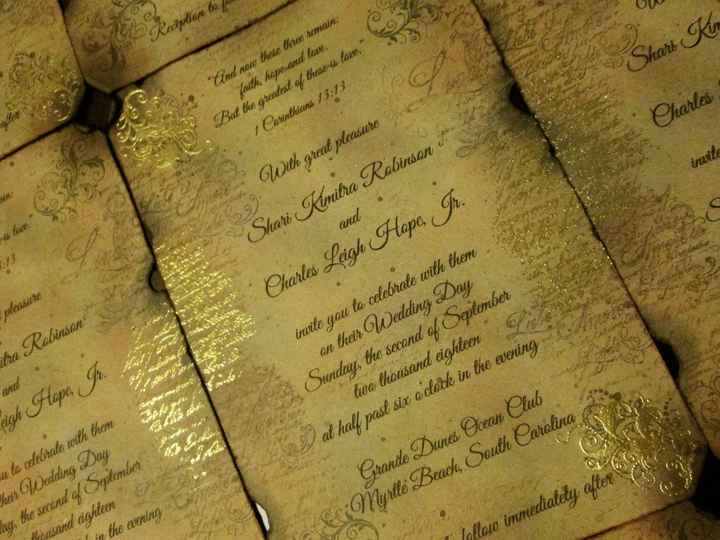 Reception to
"And now these three remain:
faith, hope and love.
But the greatest of these is love."
1 Corinthians 13:13
With great pleasure
Shari Kimitra Robinson
and
Charles Leigh Hope, Jr.
invite you to celebrate with them
on their Wedding Day
Sunday, the second of September
two thousand eighteen
at half past six o'clock in the evening
Grande Dunes Ocean Club
Myrtle Beach, South Carolina
follow immediately after
after
is love."
:13
pleasure
Robinson
and
Hope, Jr.
to celebrate with them
Wedding Day
the second of September
thousand eighteen
in the evening
Shari
Charles